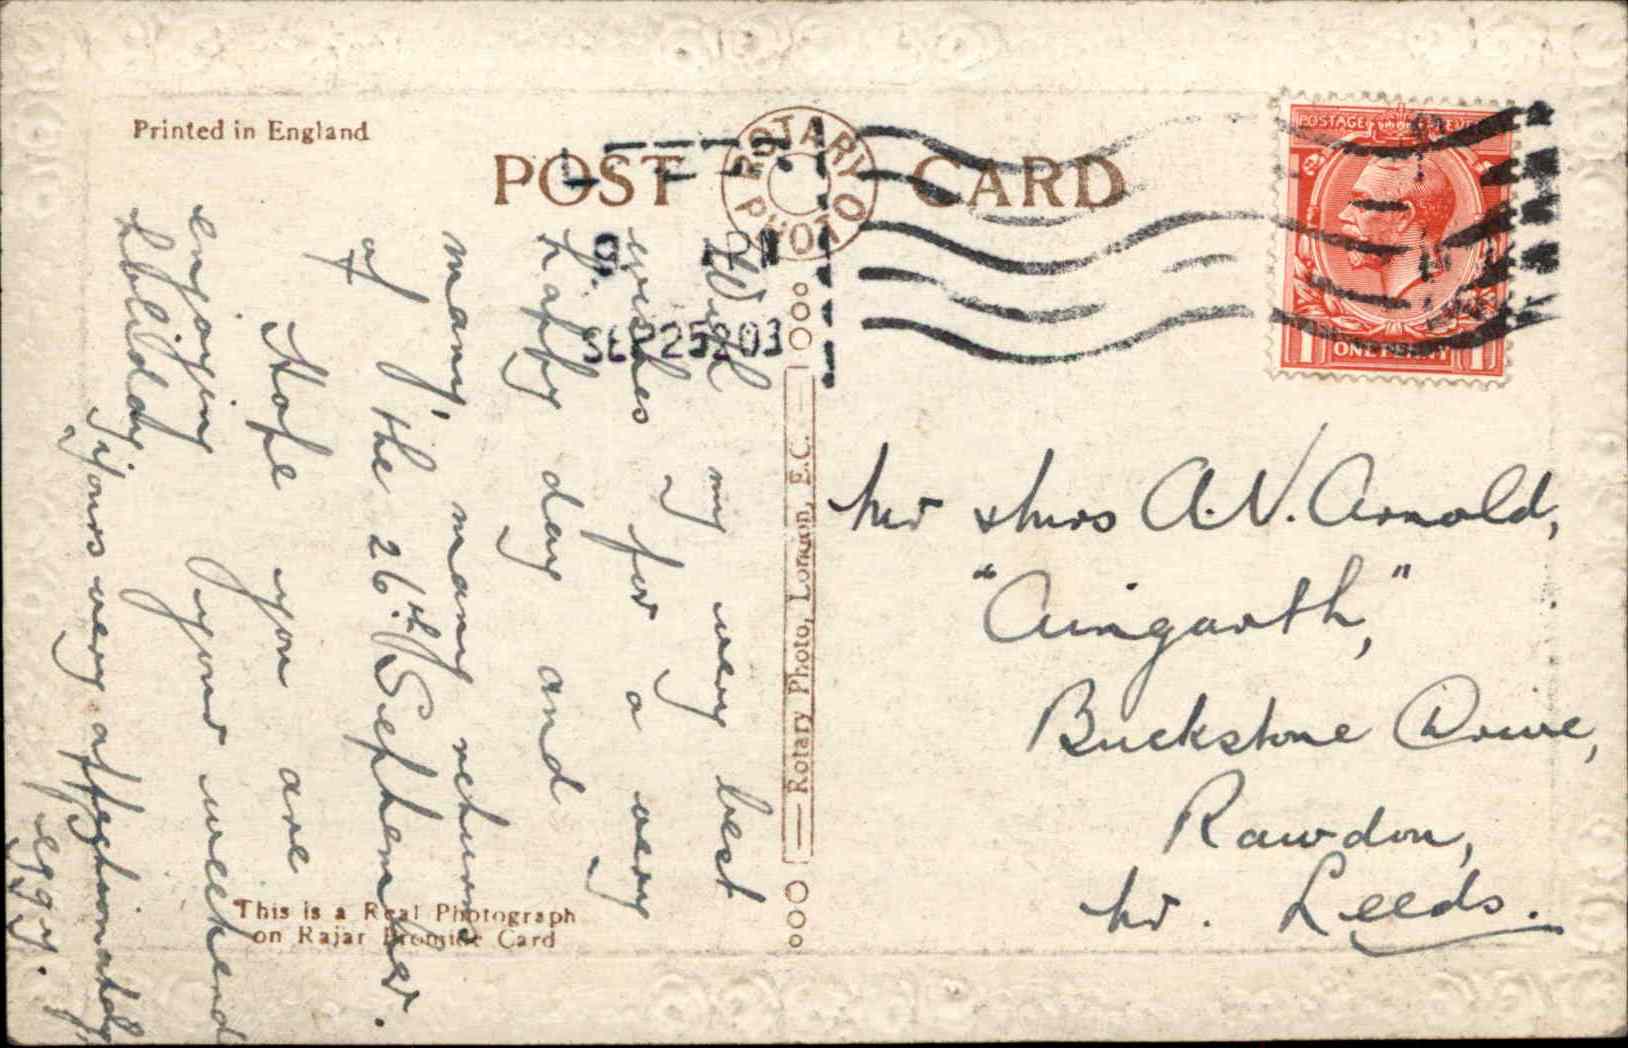 Printed in England
POST CARD
ROTARY PHOTO
SEP 25
POSTAGE
ONE PENNY
With my very best
wishes for a very
happy day and
many, many returns
of the 26th September.
Hope you are
enjoying your weekend
holiday
Yours very affectionately
Mr & Mrs A.V. Arnold,
Buckstone Drive,
Rawdon,
Nr. Leeds.
Rotary Photo, London, E.C.
This is a Real Photograph
on Rajar Bromide Card